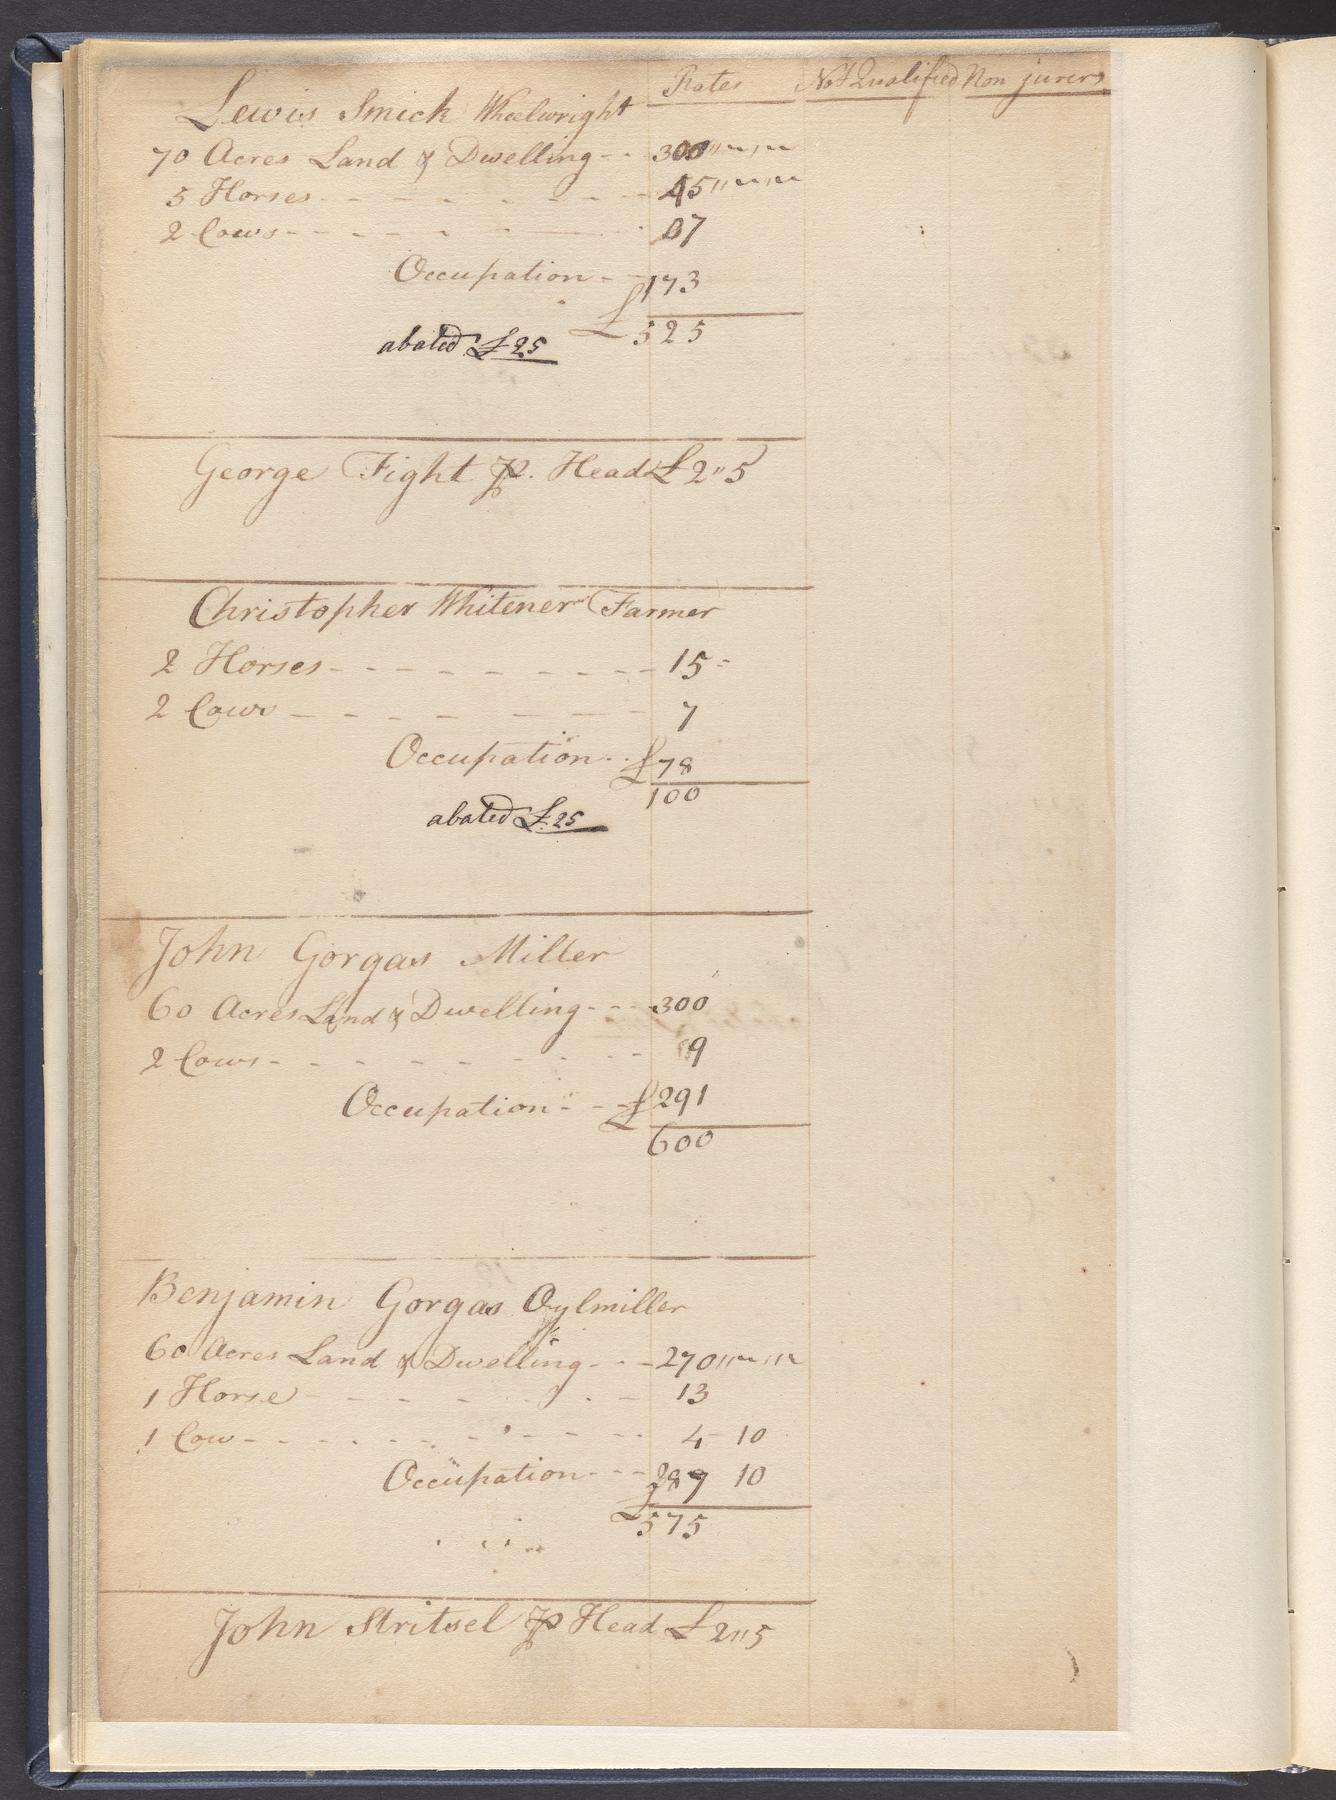 Rates Not Qualified Non jurers
Lewis Smick Wheelwright
70 Acres Land & Dwelling - - 300 " " "
5 Horses - - - - - - - 45 " " "
2 Cows - - - - - - 07
Occupation - - 173
£ 525
abated £25
George Fight p. Head £2"5
Christopher Whitener Farmer
2 Horses - - - - - - - - - 15 =
2 Cows - - - - - - - 7
Occupation - - 78
£ 100
abated £.25
John Gorgas Miller
60 Acres Land & Dwelling - - - 300
2 Cows - - - - - - - - 9
Occupation - - 291
£ 600
Benjamin Gorgas Oylmiller
60 Acres Land & Dwelling - - - 270 " " "
1 Horse - - - - - - - 13
1 Cow - - - - - - - - - 4 - 10
Occupation - - - 287 10
£ 575
John Stritsel p Head £2"5